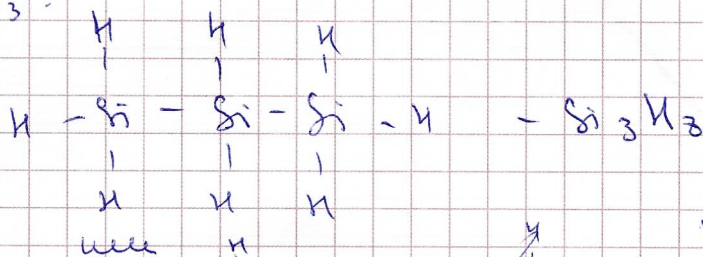 3.
H H H
H - Si - Si - Si - H - Si3H8
H H H
или H H